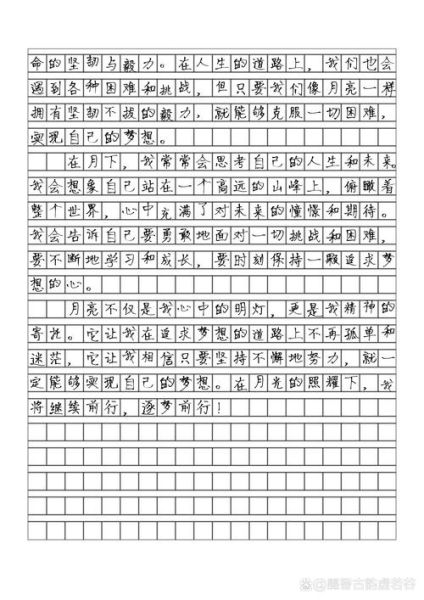 命的坚韧与毅力。在人生的道路上，我们也会
遇到各种困难和挑战，但只要我们像月亮一样
拥有坚韧不拔的毅力，就能够克服一切困难，
实现自己的梦想。
在月下，我常常会思考自己的人生和未来。
我会想象自己站在一个高远的山峰上，俯瞰着
整个世界，心中充满了对未来的憧憬和期待。
我会告诉自己要勇敢地面对一切挑战和困难，
要不断地学习和成长，要时刻保持一颗追求梦
想的心。
月亮不仅是我心中的明灯，更是我精神的
寄托。它让我在追求梦想的道路上不再孤单和
迷茫，它让我相信只要坚持不懈地努力，就一
定能够实现自己的梦想。在月光的照耀下，我
将继续前行，逐梦前行！
@魔兽古韵虚若谷